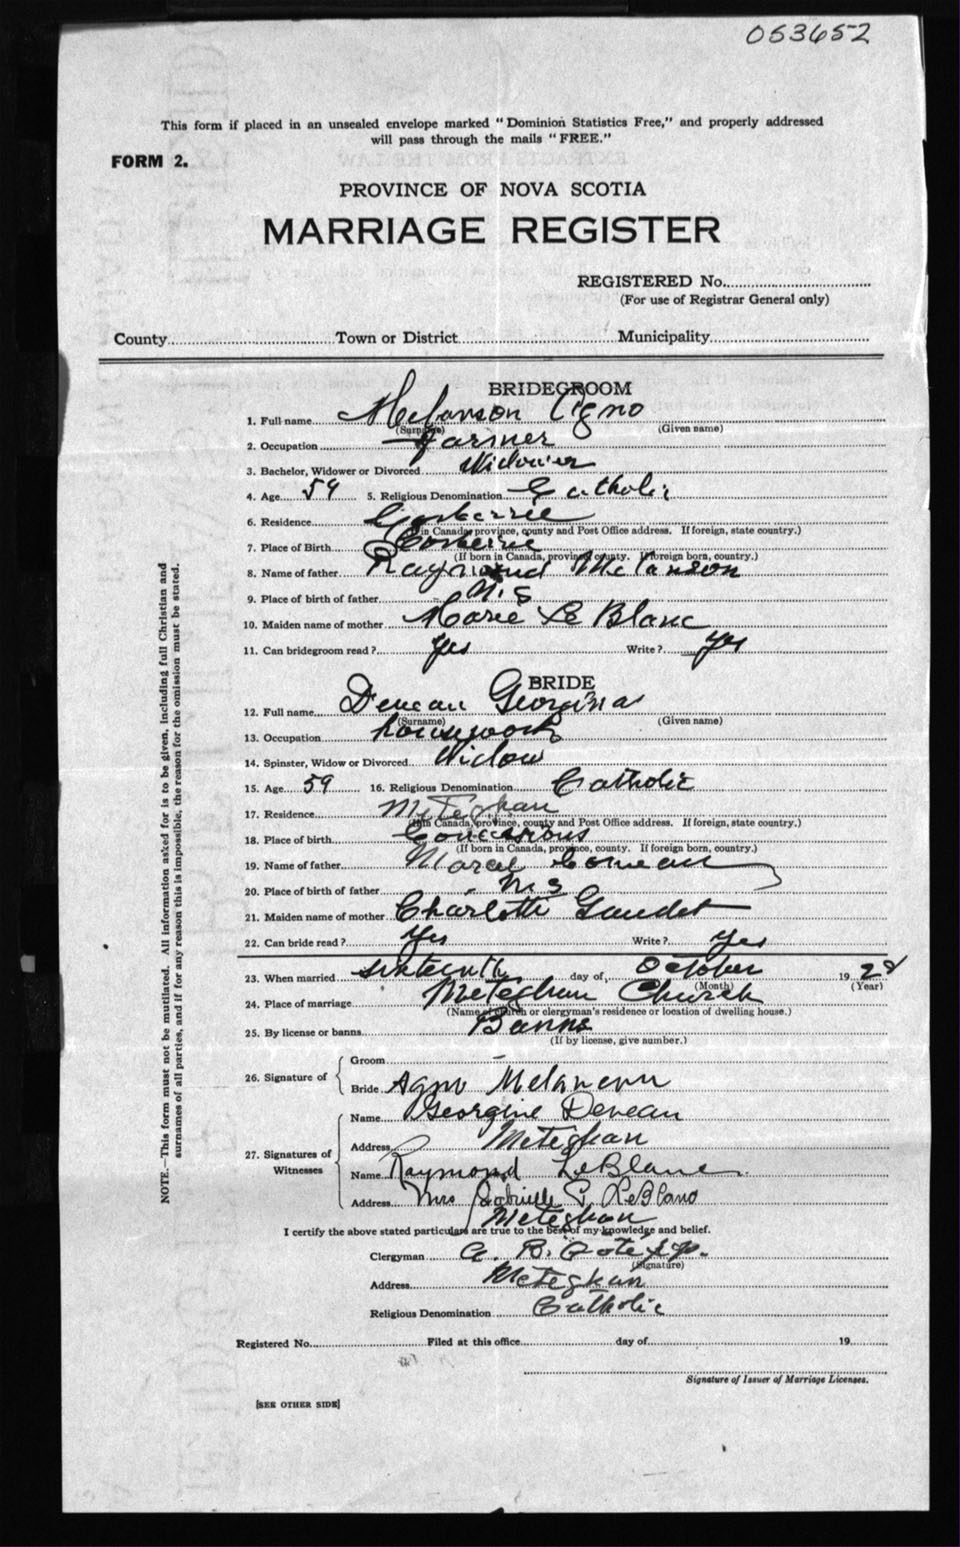 053652
This form if placed in an unsealed envelope marked "Dominion Statistics Free," and properly addressed
will pass through the mails "FREE."
FORM 2.
PROVINCE OF NOVA SCOTIA
MARRIAGE REGISTER
REGISTERED No.
(For use of Registrar General only)
County Town or District Municipality
BRIDEGROOM
1. Full name Melanson Agno
(Surname) (Given name)
2. Occupation Farmer
3. Bachelor, Widower or Divorced Widower
4. Age 59 5. Religious Denomination Catholic
6. Residence Corberrie
(If in Canada, province, county and Post Office address. If foreign, state country.)
7. Place of Birth Corberrie
(If born in Canada, province, county. If foreign born, country.)
8. Name of father Raymond Melanson
9. Place of birth of father N.S
10. Maiden name of mother Marie Le Blanc
11. Can bridegroom read? Yes Write? yes
BRIDE
12. Full name Deveau Georgina
(Surname) (Given name)
13. Occupation housework
14. Spinster, Widow or Divorced Widow
15. Age 59 16. Religious Denomination Catholic
17. Residence Meteghan
(If in Canada, province, county and Post Office address. If foreign, state country.)
18. Place of birth Concessions
(If born in Canada, province, county. If foreign born, country.)
19. Name of father Marcel Comeau
20. Place of birth of father N S
21. Maiden name of mother Charlotte Gaudet
22. Can bride read? Yes Write? Yes
23. When married sixteenth day of October 1928
(Month) (Year)
24. Place of marriage Meteghan Church
(Name of church or clergyman's residence or location of dwelling house.)
25. By license or banns Banns
(If by license, give number.)
26. Signature of
Groom
Bride Agno Melanson
27. Signatures of Witnesses
Name Georgine Deveau
Address Meteghan
Name Raymond LeBlanc
Address Mrs Gabrielle LeBlanc
Meteghan
I certify the above stated particulars are true to the best of my knowledge and belief.
Clergyman A. B. Cote
(Signature)
Address Meteghan
Religious Denomination Catholic
Registered No. Filed at this office day of 19
Signature of Issuer of Marriage Licenses.
[SEE OTHER SIDE]
NOTE.—This form must not be mutilated. All information asked for is to be given, including full Christian and
surnames of all parties, and if for any reason this is impossible, the reason for the omission must be stated.